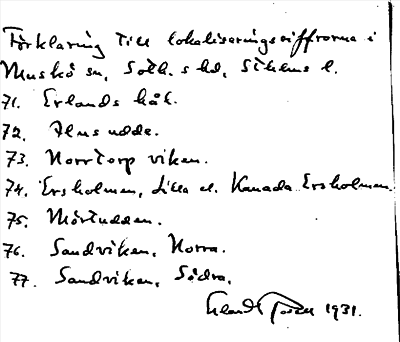 Förklaring till lokaliseringssiffrorna i
Muskö sn, Soth. s hd, Sthlms l.
71. Erlands håk.
72. Alnsudde.
73. Norrtorp viken.
74. Ersholmen, Lilla el. Kanada Ersholmen.
75. Mörtudden.
76. Sandviken, Norra.
77. Sandviken, Södra.
1931.